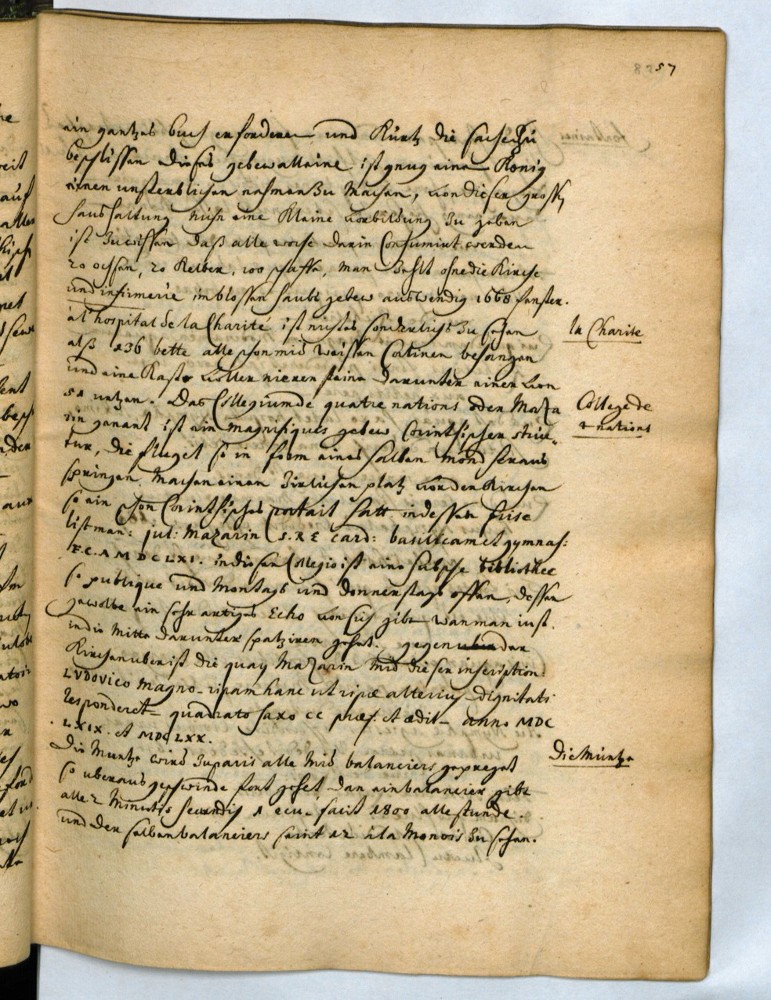 57
ein gantzes buch erforderen und Kürtz die sache zu
beschlissen dieses gebew alleine ist gnug einen König
einen unsterblichen nahmen zu machen, von dieser grossen
haushaltung nuhn eine kleine vorbildung zu geben
ist zu wissen daß alle woche darin Consumirt werden
20 ochsen, 20 Kelber, 100 schaffe, man zehlt ohne die Kirche
und infirmerie im blossen haubt gebew auswendig 1668 fenster.
al hospital de la Charité ist nichts sonderlichs zu sehen
alß 136 bette alle schon mid weissen Cortinen behangen
und eine Kaste voller nieren steine darunter einer von
51 untzen. Das Collegium de quatre nations oder Maza
rin genant ist ein magnifiques gebew Corinthischer struc-
tur, die flugel so in form eines halben mond heraus
springen, machen einen zirlichen platz vor der Kirchen
so ein schon Corinthisches portail hatt in dessen frise
list man: jul: Mazarin S. R E Card: basilicam et gymnas:
F. C. A M D C LXI. in diesen Collegio ist eine hubsche bibliothec
so publique und Montags und donnerstags offen, dessen
gewolbe ein sehr artiges Echo von sich gibt wan man iust
in die mitte darunter spatziren gehet. gegen der
Kirchen uber ist die quay Mazarin mid dieser inscription
LVDovico magno - ripam hanc ut ripæ alterius dignitati
responderet quadrato saxo CC præf. et ædit anno MDC
LXIX. et MDCLXX.
Die Muntze wird zu paris alle mid balanciers gepreget
so uberaus geschwinde fort gehet, dan ein balancier gibt
alle 2 Minutis secundis 1 ecu. facit 1800 alle stunde.
und der selben balanciers seint 12 à la Monois zu sehen.
la Charite
College de
4 nations
Die Müntze